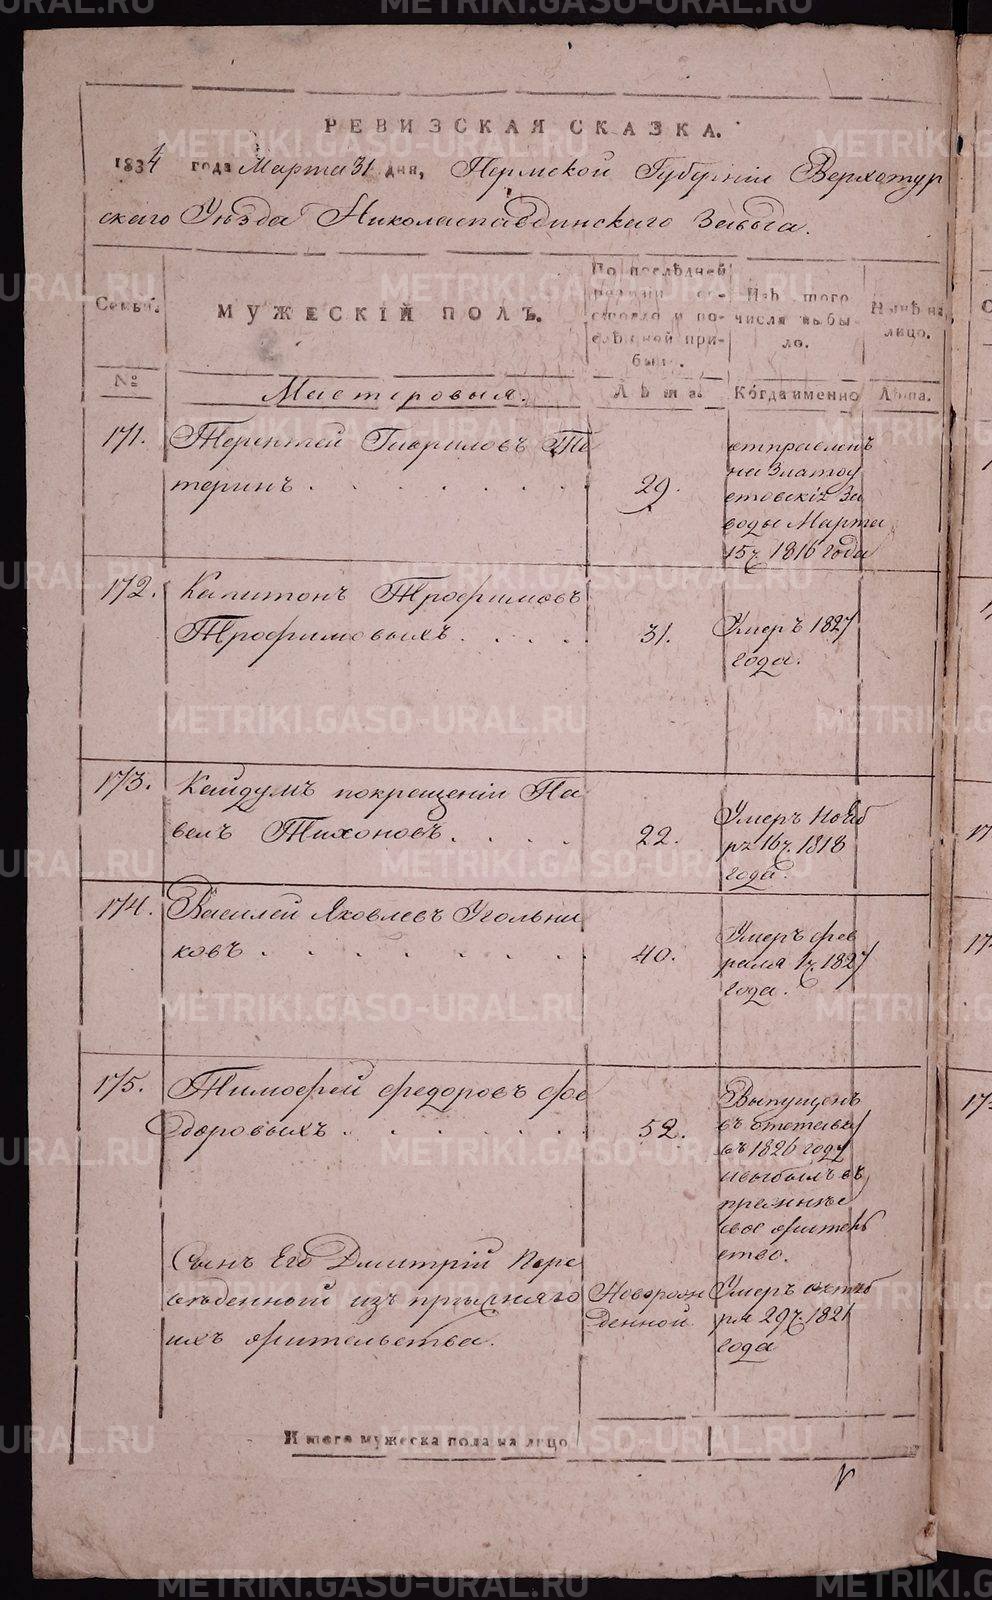 РЕВИЗСКАЯ СКАЗКА.
1834 года Марта 31 дня, Пермской Губерніи Верхотур
скаго Уѣзда Николаепавдинскаго Завода.
Семьи.
МУЖЕСКІЙ ПОЛЪ.
По послѣдней ревизіи состояло и послѣ оной прибыло.
Изъ того числа выбыло.
Нынѣ на лицо.
№
Мастеровыя.
Лѣта.
Когда именно
Лѣта.
171. Терентей Гавриловъ Те
теринъ 29.
отправленъ
на Златоу
стовскіе За
воды Марта
15ч. 1816 года
172. Капитонъ Трофимовъ
Трофимовыхъ 31.
Умеръ 1827
года.
173. Кайдумъ покрещеніи Па
велъ Тихоновъ 22.
Умеръ Нояб
ря 16ч. 1818
года.
174. Василей Яковлевъ Угольни
ковъ 40.
Умеръ фев
раля 1ч. 1827
года.
175. Тимофей Федоровъ Фео
доровыхъ 52.
Выпущенъ
въ отставку
въ 1826 году
и выбылъ въ
прежнее
свое житель
ство.
Сынъ Его Дмитрій Пере
веденной изъ прежняго
ихъ жительства.
Новорож
денной
Умеръ октяб
ря 29ч. 1821
года
Итого мужеска пола на лицо
METRIKI.GASO-URAL.RU